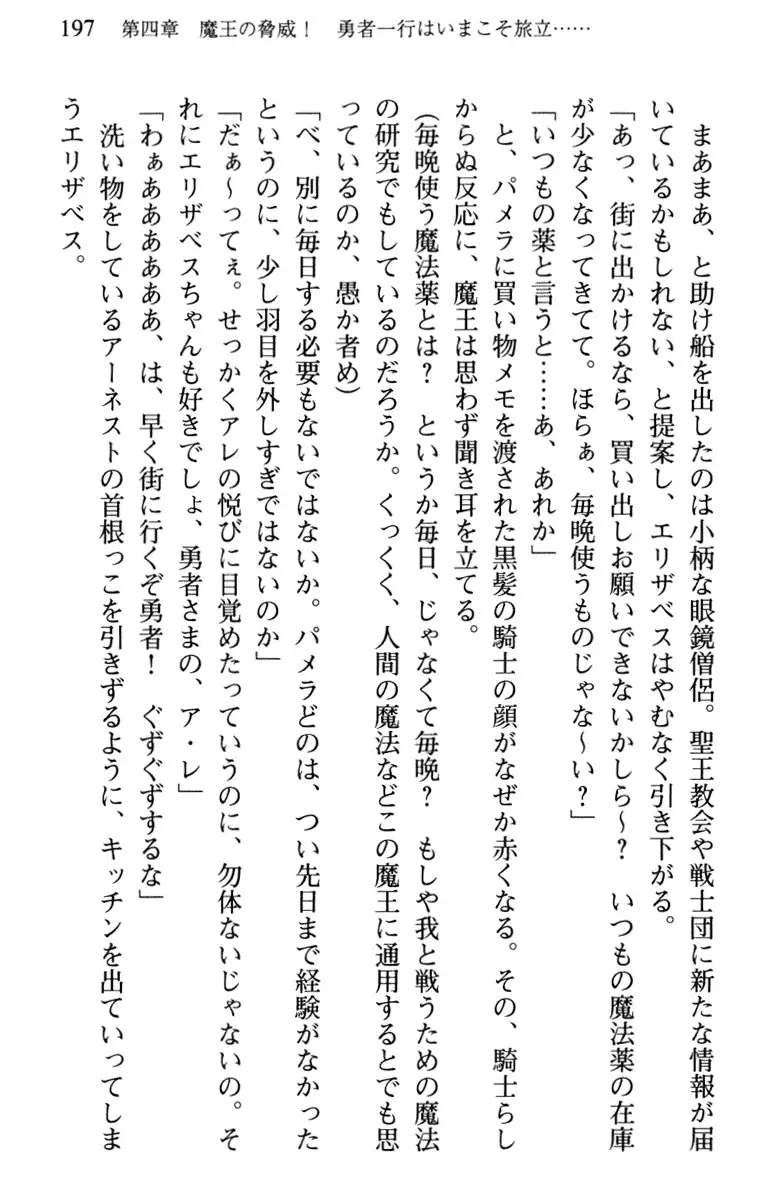 197　第四章　魔王の脅威！　勇者一行はいまこそ旅立……
　まあまあ、と助け船を出したのは小柄な眼鏡僧侶。聖王教会や戦士団に新たな情報が届
いているかもしれない、と提案し、エリザベスはやむなく引き下がる。
「あっ、街に出かけるなら、買い出しお願いできないかしら～？　いつもの魔法薬の在庫
が少なくなってきてて。ほらぁ、毎晩使うものじゃな～い？」
「いつもの薬と言うと……あ、あれか」
　と、パメラに買い物メモを渡された黒髪の騎士の顔がなぜか赤くなる。その、騎士らし
からぬ反応に、魔王は思わず聞き耳を立てる。
（毎晩使う魔法薬とは？　というか毎日、じゃなくて毎晩？　もしや我と戦うための魔法
の研究でもしているのだろうか。くっくく、人間の魔法などこの魔王に通用するとでも思
っているのか、愚か者め）
「べ、別に毎日する必要もないではないか。パメラどのは、つい先日まで経験がなかった
というのに、少し羽目を外しすぎではないのか」
「だぁ～ってぇ。せっかくアレの悦びに目覚めたっていうのに、勿体ないじゃないの。そ
れにエリザベスちゃんも好きでしょ、勇者さまの、ア・レ」
「わぁああああああ、は、早く街に行くぞ勇者！　ぐずぐずするな」
　洗い物をしているアーネストの首根っこを引きずるように、キッチンを出ていってしま
うエリザベス。